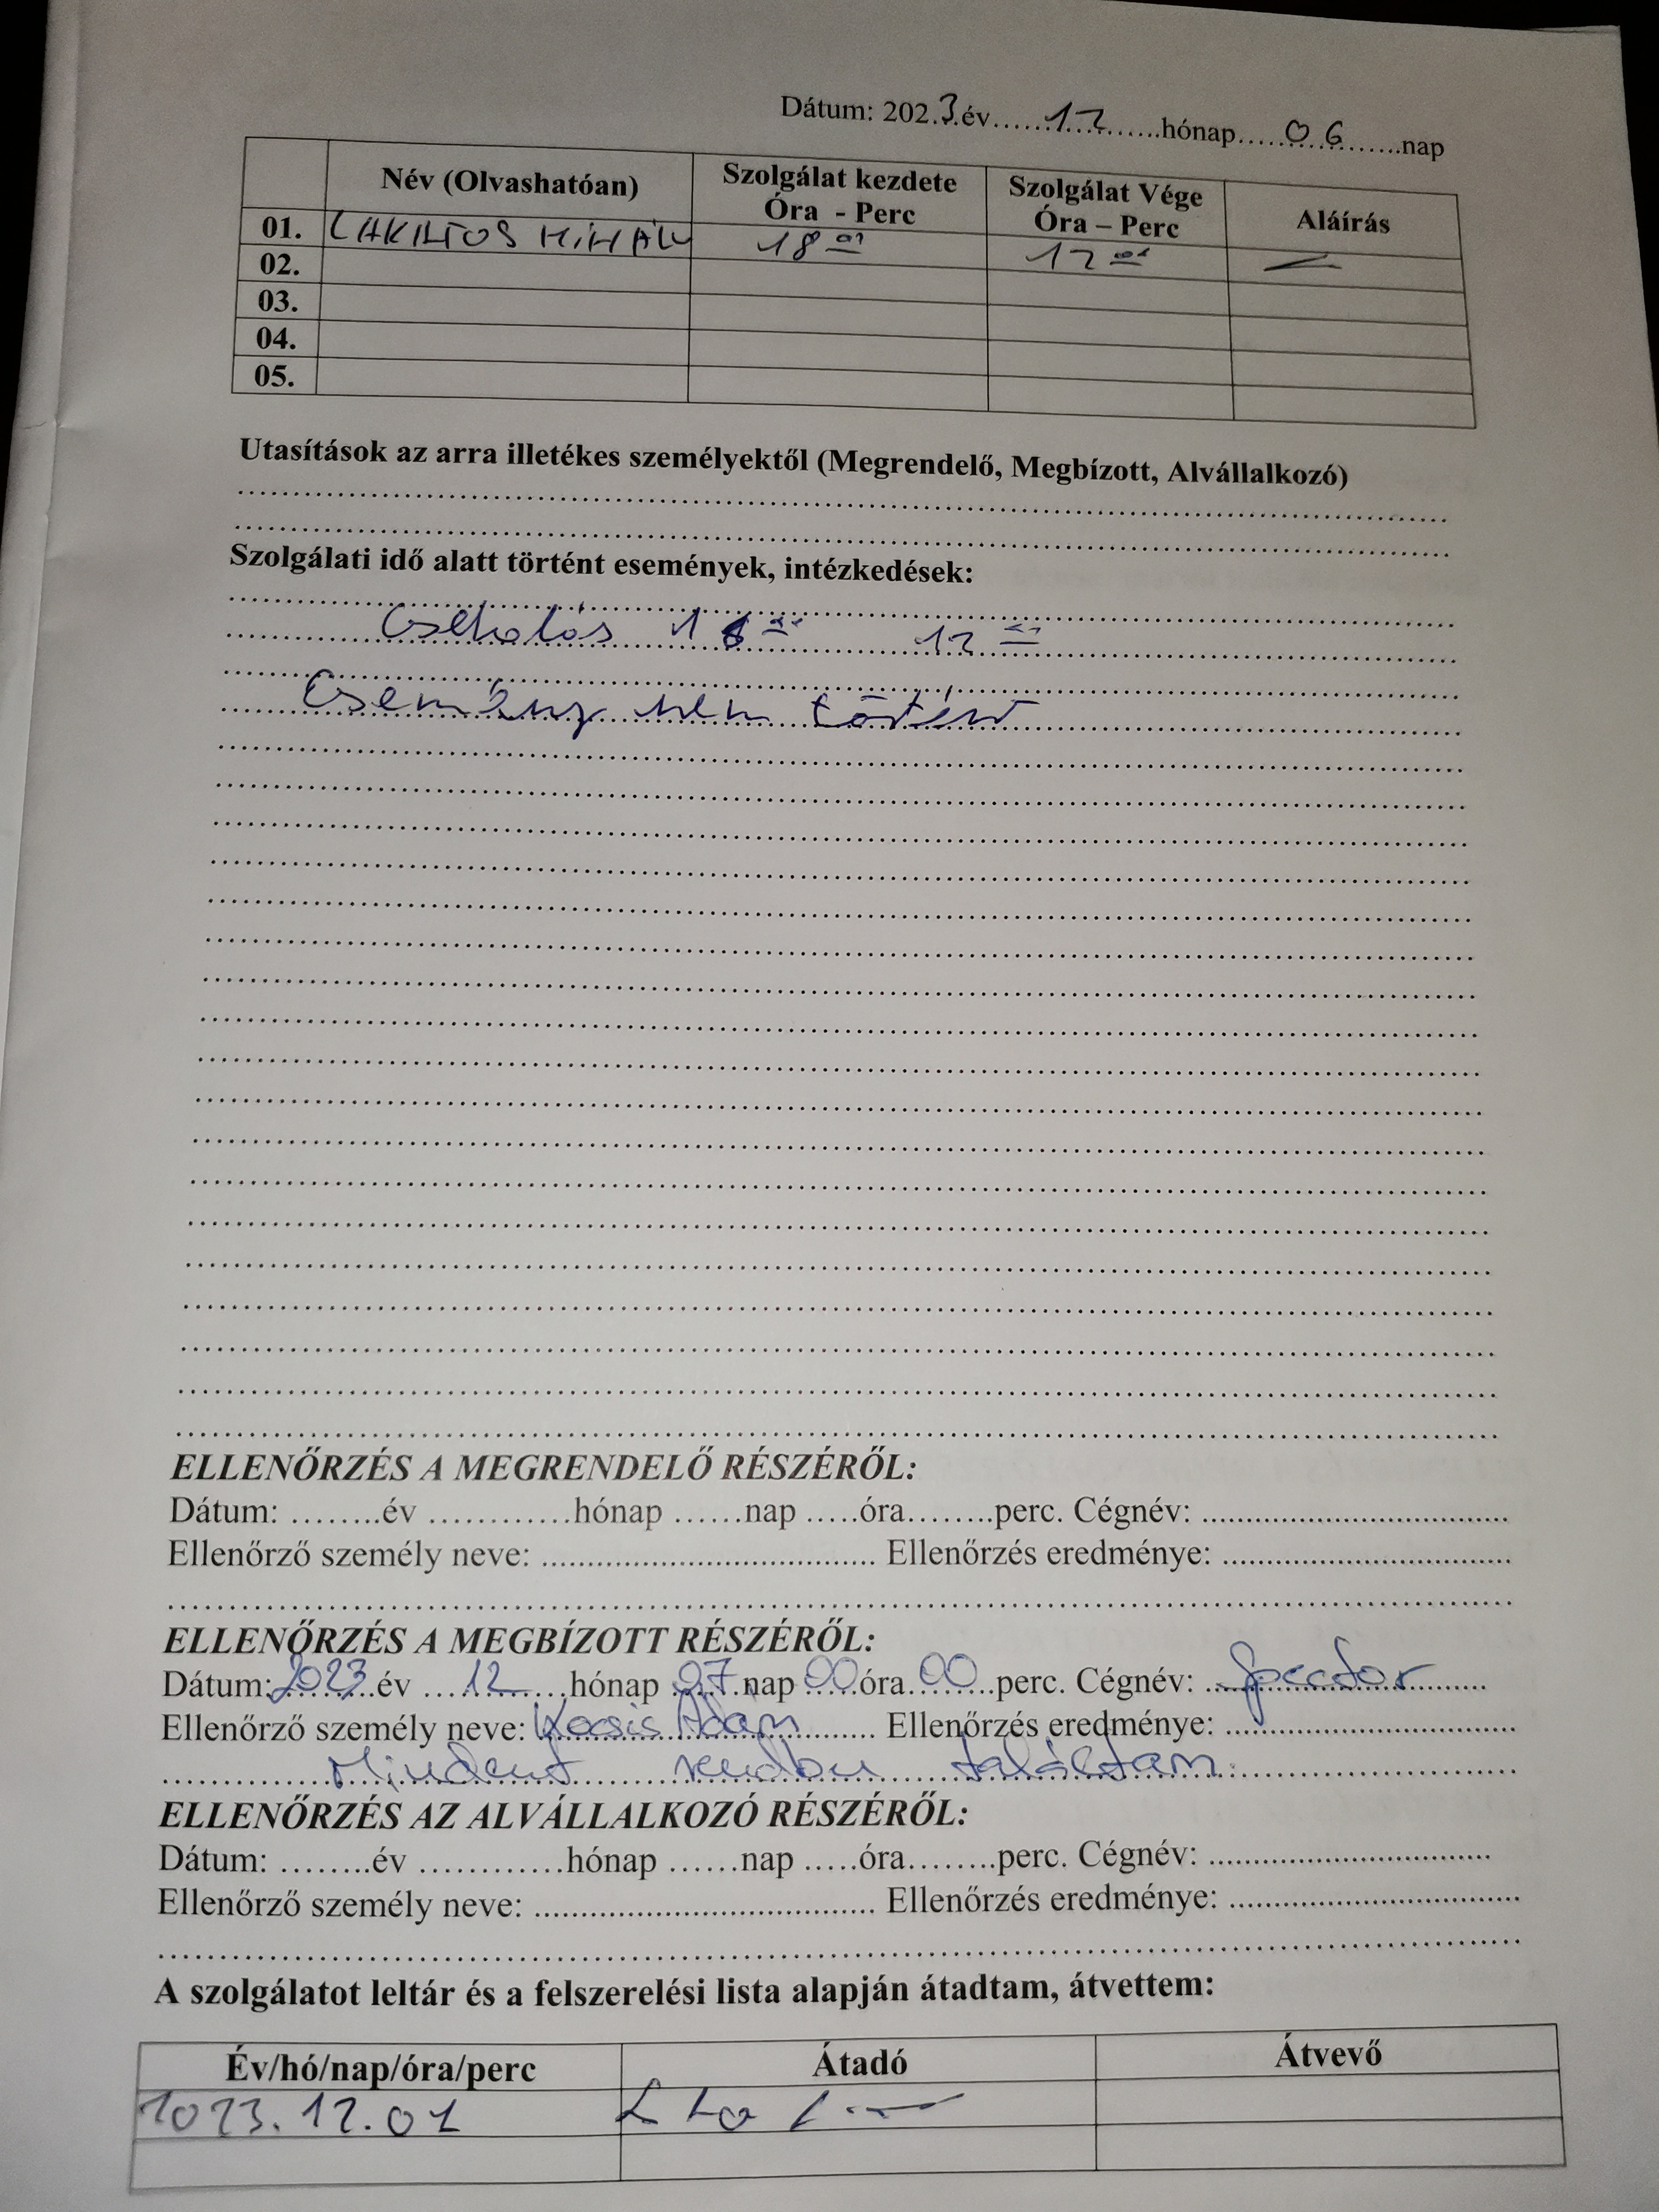 Dátum: 2023.év......12.......hónap......06........nap
Név (Olvashatóan) Szolgálat kezdete Óra - Perc Szolgálat Vége Óra – Perc Aláírás
01. MIHÁLY 18 00 12
02.
03.
04.
05.
Utasítások az arra illetékes személyektől (Megrendelő, Megbízott, Alvállalkozó)
Szolgálati idő alatt történt események, intézkedések:
12
Esemény nem történt
ELLENŐRZÉS A MEGRENDELŐ RÉSZÉRŐL:
Dátum: ........év ............hónap ......nap .....óra........perc. Cégnév: ..................................
Ellenőrző személy neve: ..................................... Ellenőrzés eredménye: ................................
ELLENŐRZÉS A MEGBÍZOTT RÉSZÉRŐL:
Dátum: 2023 év ....12......hónap 07 nap 00 óra 00 perc. Cégnév: Spector
Ellenőrző személy neve: Kocsis Ádám Ellenőrzés eredménye: ................................
Mindent rendbn találtam.
ELLENŐRZÉS AZ ALVÁLLALKOZÓ RÉSZÉRŐL:
Dátum: ........év ............hónap ......nap .....óra........perc. Cégnév: ...............................
Ellenőrző személy neve: ...................................... Ellenőrzés eredménye: ................................
A szolgálatot leltár és a felszerelési lista alapján átadtam, átvettem:
Év/hó/nap/óra/perc Átadó Átvevő
2023.12.07